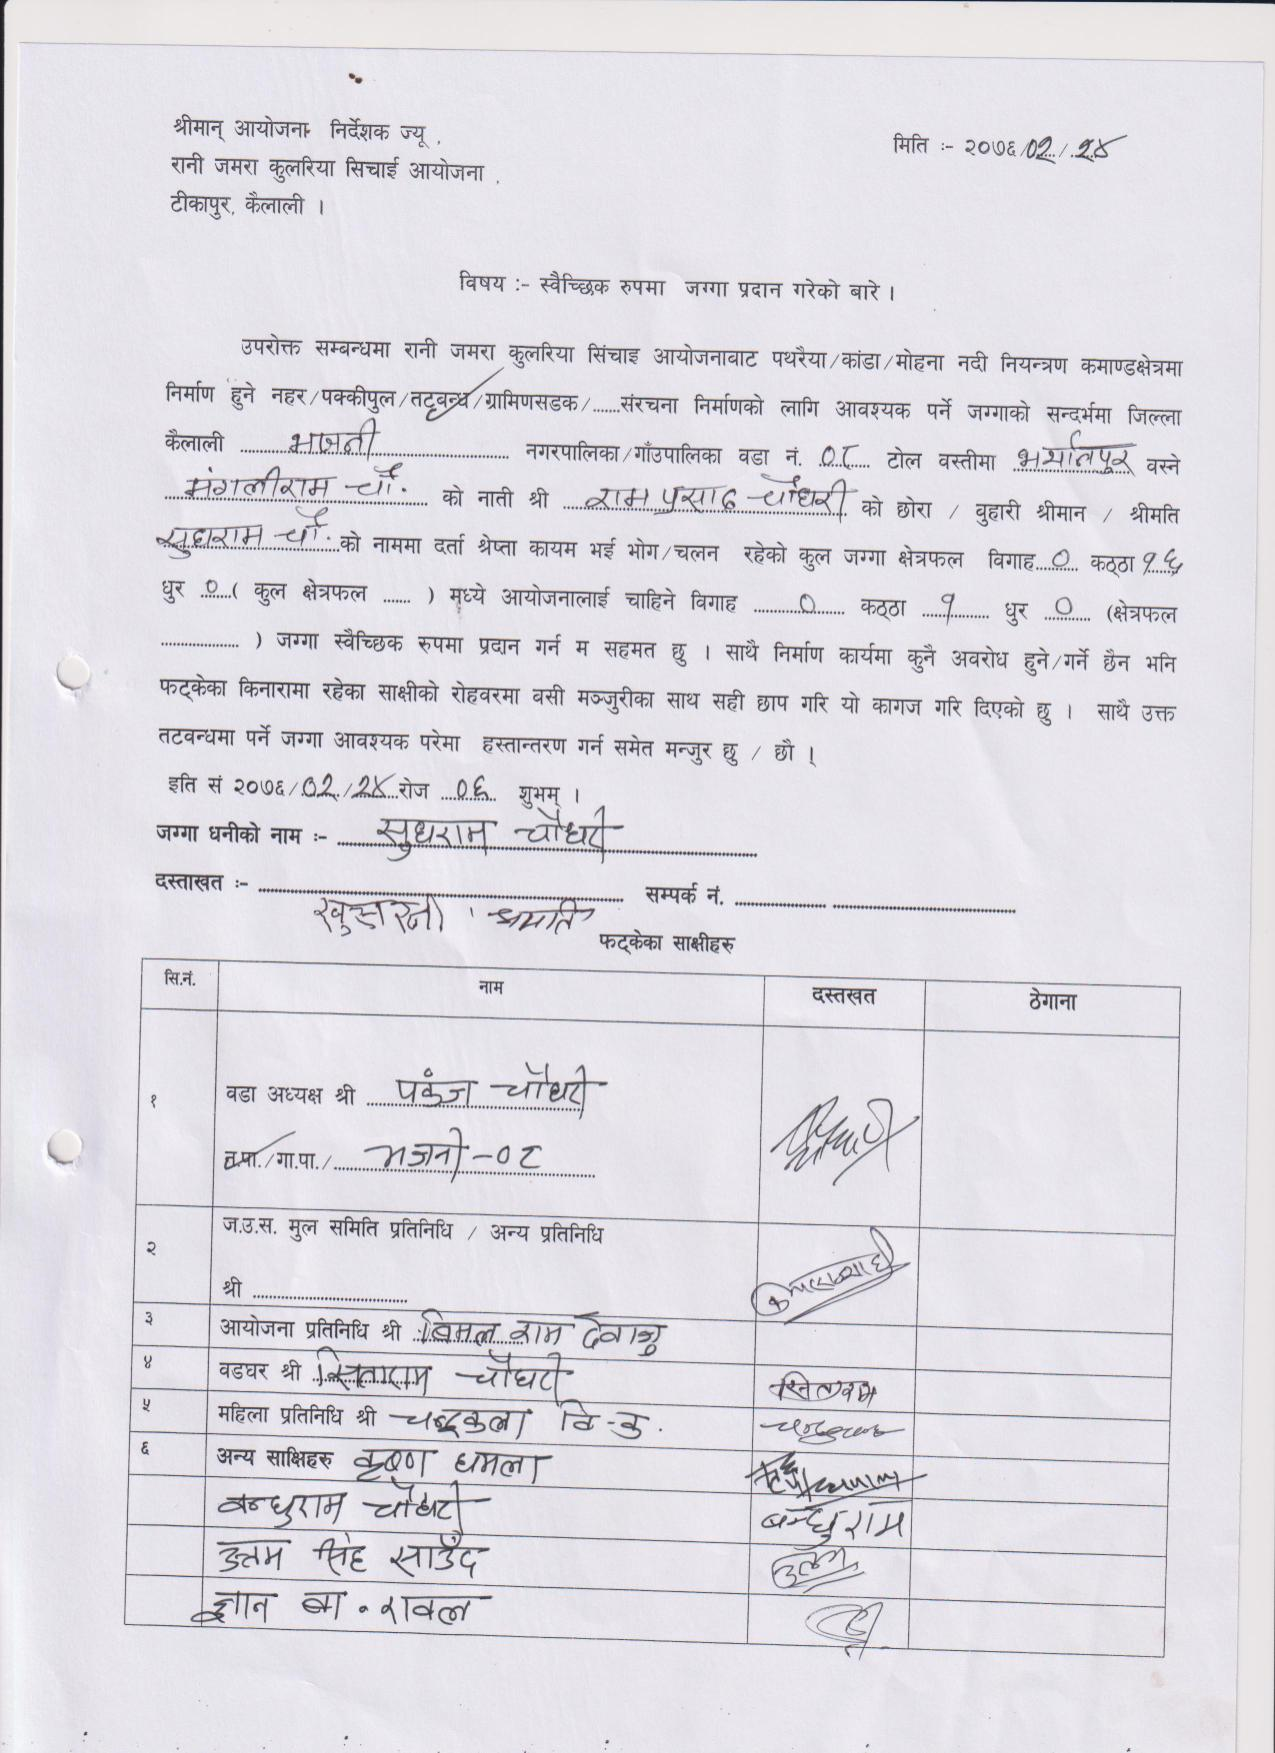 श्रीमान् आयोजना निर्देशक ज्यू ,
मिति :- २०७६/०२/२४
रानी जमरा कुलरिया सिचाई आयोजना ,
टीकापुर, कैलाली ।
विषय :- स्वैच्छिक रुपमा जग्गा प्रदान गरेको बारे ।
उपरोक्त सम्बन्धमा रानी जमरा कुलरिया सिंचाइ आयोजनावाट पथरैया/कांडा/मोहना नदी नियन्त्रण कमाण्डक्षेत्रमा
निर्माण हुने नहर/पक्कीपुल/तट्वन्ध/ग्रामिणसडक/......संरचना निर्माणको लागि आवश्यक पर्ने जग्गाको सन्दर्भमा जिल्ला
कैलाली भजनी नगरपालिका/गाँउपालिका वडा नं. ०८ टोल वस्तीमा वस्ने
मंगलीराम चौ. को नाती श्री राम प्रसाद चौधरी को छोरा / वुहारी श्रीमान / श्रीमति
सुधाराम चौ. को नाममा दर्ता श्रेष्ता कायम भई भोग/चलन रहेको कुल जग्गा क्षेत्रफल विगाह ० कठ्ठा १६
धुर ० ( कुल क्षेत्रफल ...... ) मध्ये आयोजनालाई चाहिने विगाह ० कठ्ठा १ धुर ० (क्षेत्रफल
.................... ) जग्गा स्वैच्छिक रुपमा प्रदान गर्न म सहमत छु । साथै निर्माण कार्यमा कुनै अवरोध हुने/गर्ने छैन भनि
फट्केका किनारामा रहेका साक्षीको रोहवरमा वसी मञ्जुरीका साथ सही छाप गरि यो कागज गरि दिएको छु । साथै उक्त
तटवन्धमा पर्ने जग्गा आवश्यक परेमा हस्तान्तरण गर्न समेत मन्जुर छु / छौ ।
इति सं २०७६/०२/२४ रोज ०६ शुभम् ।
जग्गा धनीको नाम :- सुधराम चौधरी
दस्ताखत :- सम्पर्क नं.
श्रीमति
फट्केका साक्षीहरु
सि.नं. नाम दस्तखत ठेगाना
१ वडा अध्यक्ष श्री पकंज चौधरी
न.पा./गा.पा./ भजनी -०८
२ ज.उ.स. मुल समिति प्रतिनिधि / अन्य प्रतिनिधि
श्री
३ आयोजना प्रतिनिधि श्री विमल राम देवाजु
४ वडघर श्री सिताराम चौधरी सिताराम
५ महिला प्रतिनिधि श्री चन्द्रकला वि.क.
६ अन्य साक्षिहरु कृष्ण धमला
बन्धुराम चौधरी बन्धु राम
उत्तम सिंह साउँद
ज्ञान बा. रावल